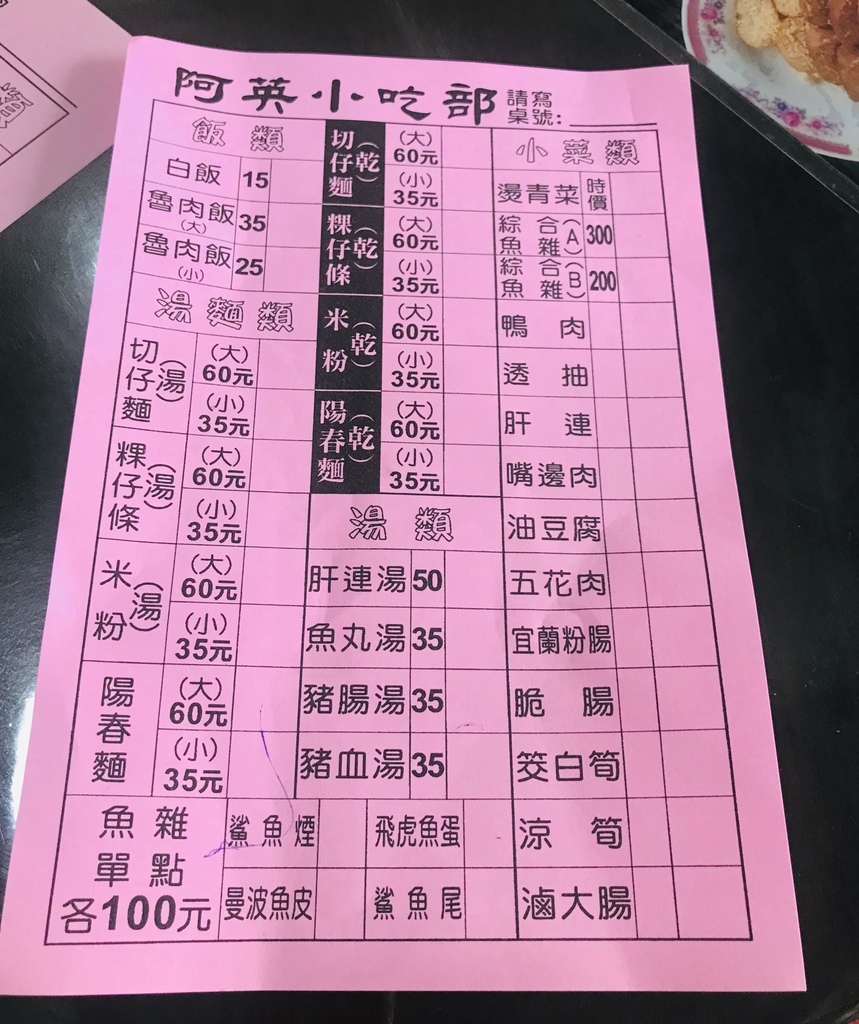 阿英小吃部
請寫
桌號:
飯類
白飯 15
魯肉飯(大) 35
魯肉飯(小) 25
湯麵類
切仔麵(湯)
(大) 60元
(小) 35元
粿仔條(湯)
(大) 60元
(小) 35元
米粉(湯)
(大) 60元
(小) 35元
陽春麵
(大) 60元
(小) 35元
切仔麵(乾)
(大) 60元
(小) 35元
粿仔條(乾)
(大) 60元
(小) 35元
米粉(乾)
(大) 60元
(小) 35元
陽春麵(乾)
(大) 60元
(小) 35元
湯類
肝連湯 50
魚丸湯 35
豬腸湯 35
豬血湯 35
小菜類
燙青菜 時價
綜合魚雜(A) 300
綜合魚雜(B) 200
鴨肉
透抽
肝連
嘴邊肉
油豆腐
五花肉
宜蘭粉腸
脆腸
筊白筍
涼筍
滷大腸
魚雜
單點
各100元
鯊魚煙
飛虎魚蛋
曼波魚皮
鯊魚尾